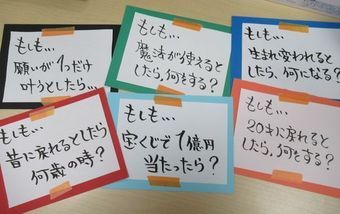 もしも…
願いが1つだけ
叶うとしたら…
もしも…
魔法が使えると
したら、何をする?
もしも…
生まれ変われると
したら、何になる?
もしも…
昔に戻れるとしたら
何歳の時?
もしも…
宝くじで1億円
当たったら?
もしも…
20才に戻れると
したら、何をする?